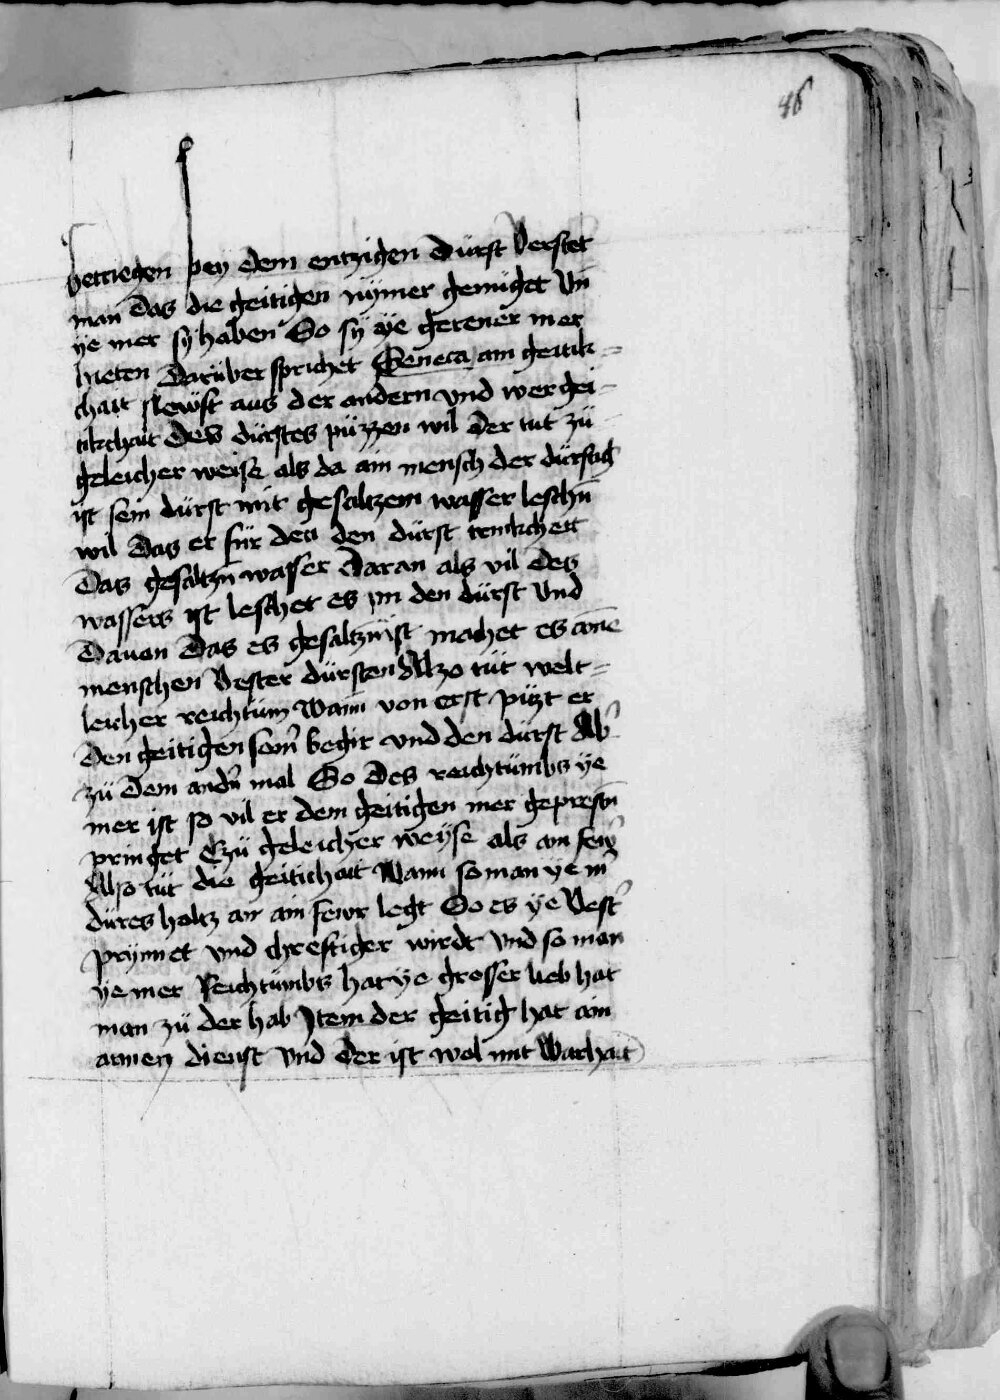 46
betriegen pey dem entzigen dürst Verstet
man das die geitigen nymer genüget Vn̄
ye mer sy haben So sy ye gerener mer
hieten Darüber sprichet Seneca am geitik=
chait slewft aus der andern vnd wer gei=
tikchait des dürstes püzzen wil Der tut zü
geleicher weise als da ain mensch der dürstig
ist sein dürst mit gesaltzem wasser leschn̄
wil Das er für den dürst trinkchett
Das gesaltzn wasser Daran als vil des
wassers ist leschet es ym den dürst Vnd
Dauon Das es gesaltzn ist machet es
menschen Vester dürsten Alzo tüt welt=
leicher reichtüm Wann von erst püzt er
Den geitigen begir vnd den dürst Ab̄
zü Dem andn̄ mal So Des reichtümbs ye
mer ist so vil er dem geitigen mer geprestn̄
pringet Czü geleicher weyse als ain fewr
Also tüt die geitichait Wann so man ye m̄
dürres holtz an ain fewr legt So es ye Vest̄
prynnet vnd chreftiger wirdt Vnd so man
ye mer Reichtümbs hat ye grosser lieb hat
man zü der hab Item der geitig hat ain
armen dienst Vnd Der ist wol mit Warhait